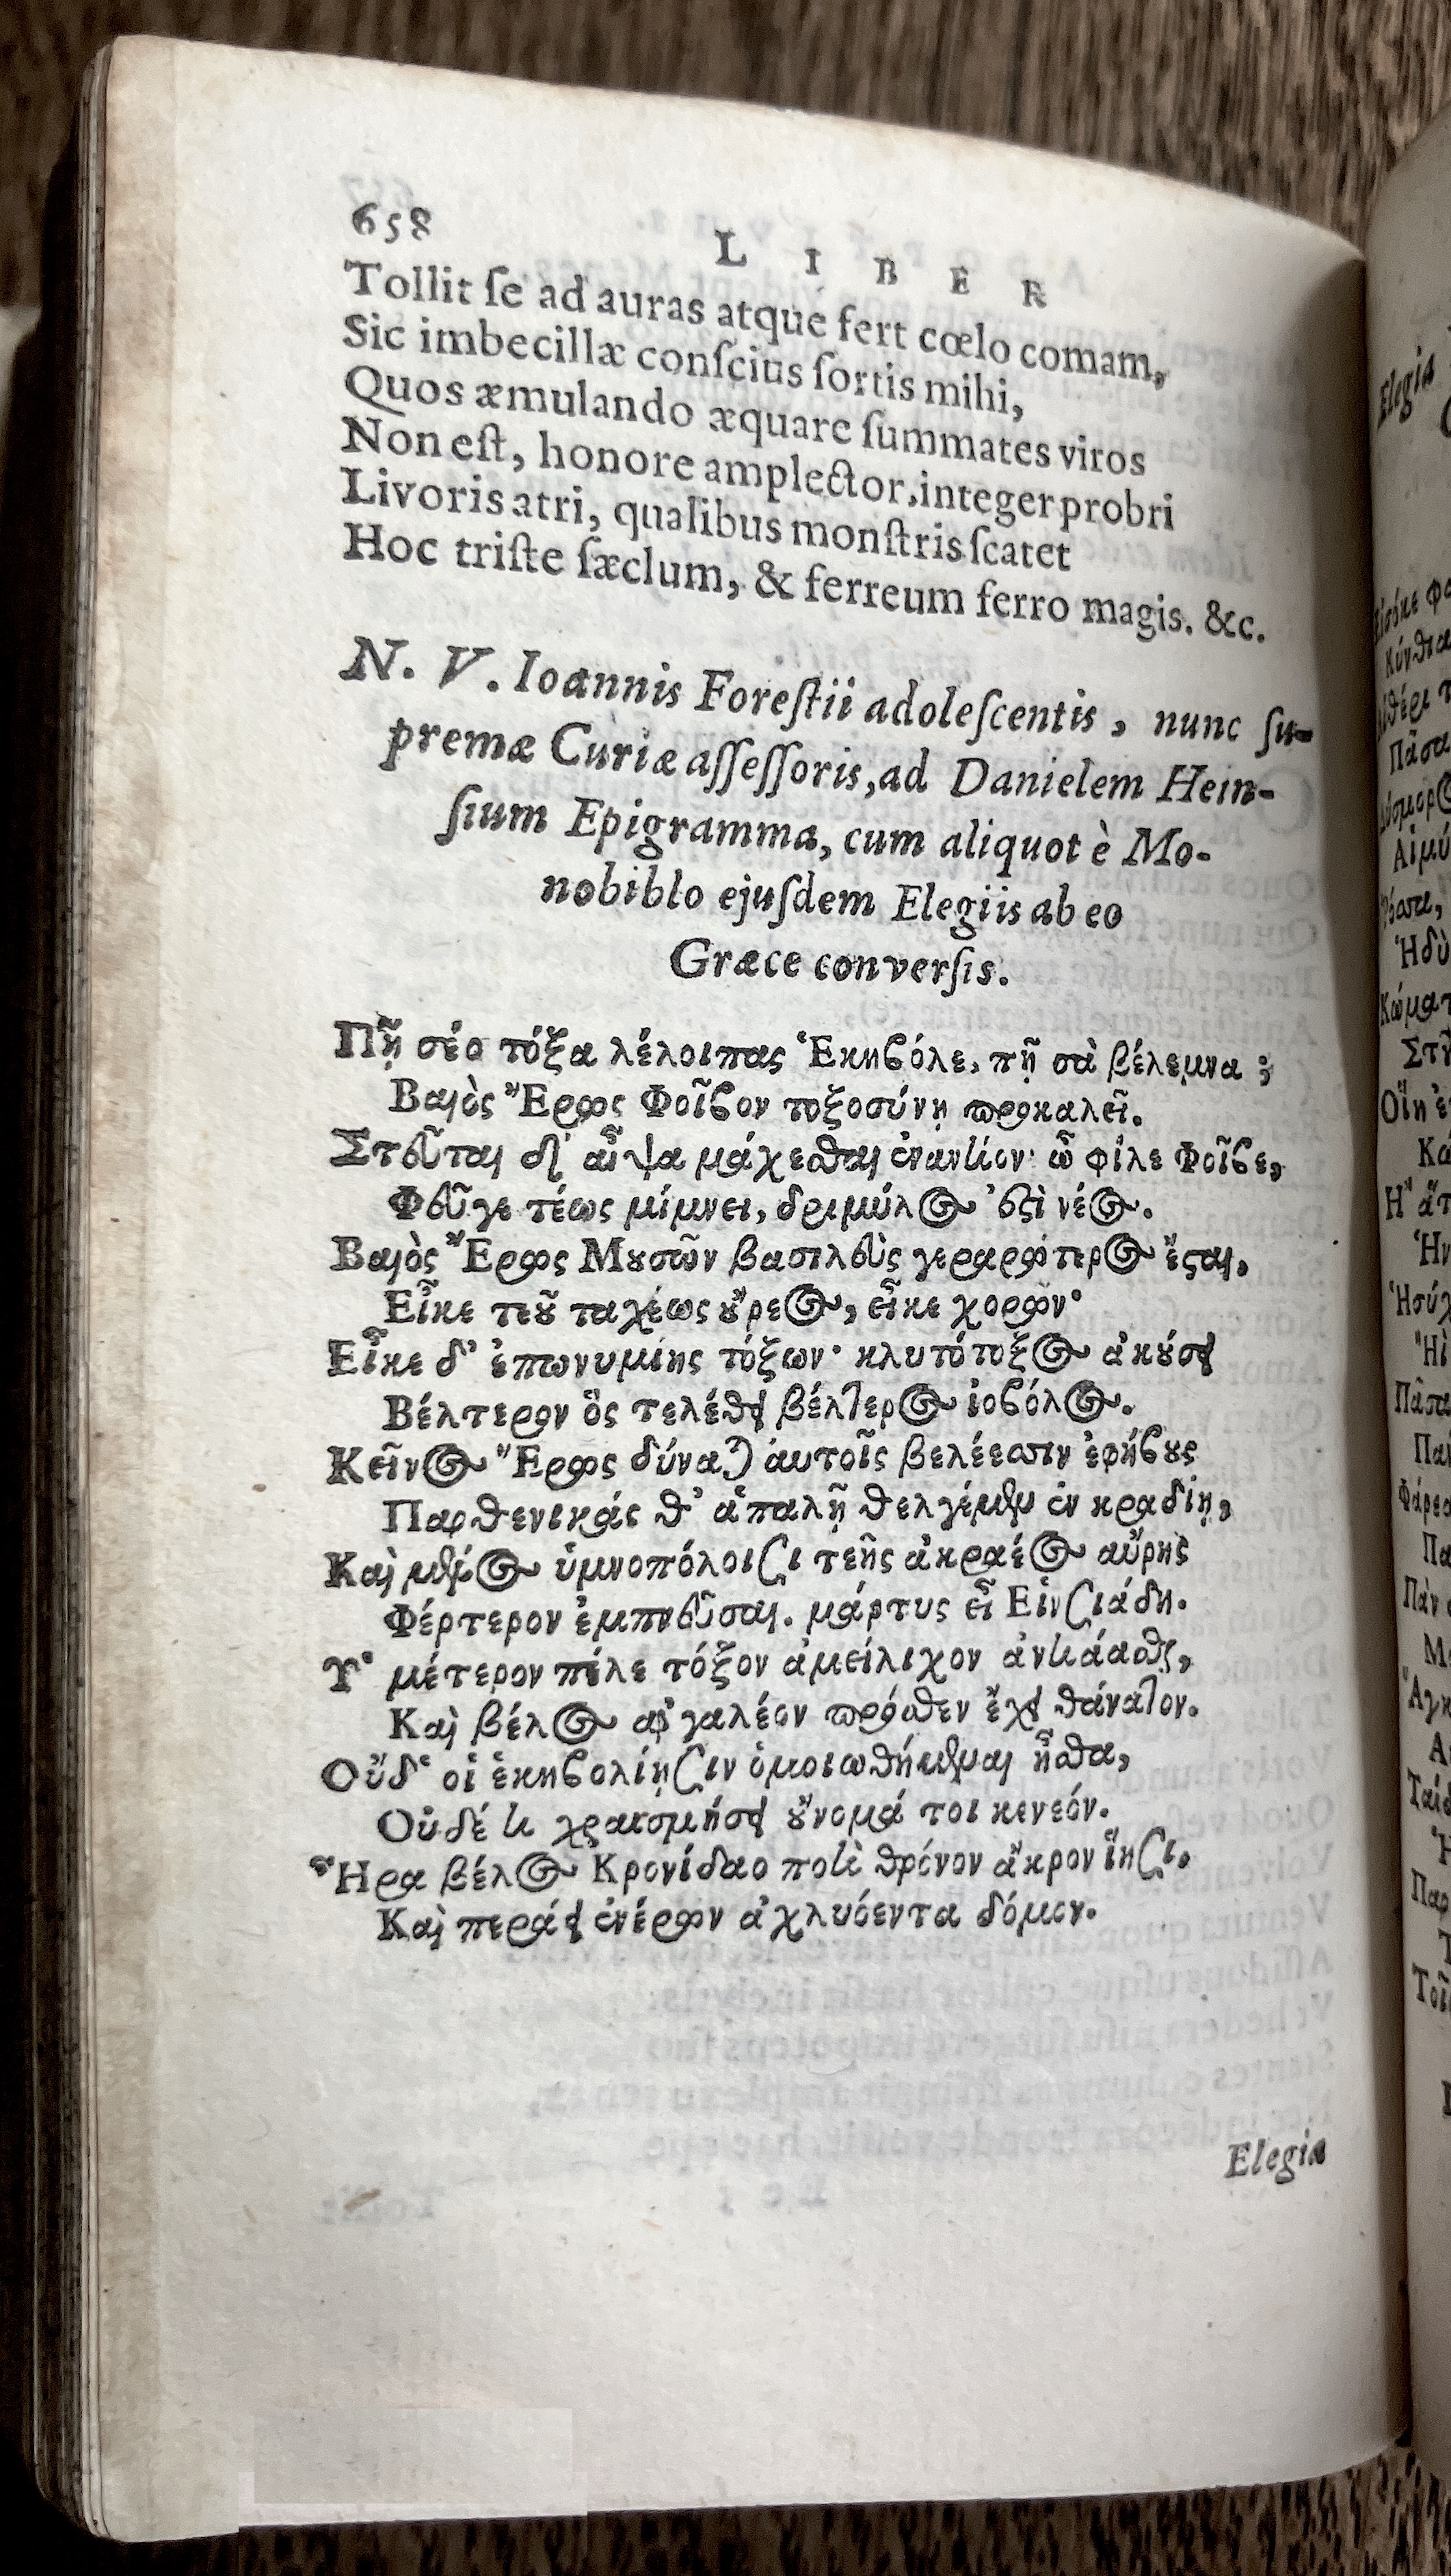 658
L I B E R
Tollit ſe ad auras atque fert cœlo comam,
Sic imbecillæ conſcius ſortis mihi,
Quos æmulando æquare ſummates viros
Non eſt, honore amplector, integer probri
Livoris atri, qualibus monſtris ſcatet
Hoc triſte ſæclum, & ferreum ferro magis. &c.
N. V. Ioannis Foreſtii adoleſcentis, nunc ſu-
premæ Curiæ aſſeſſoris, ad Danielem Hein-
ſium Epigramma, cum aliquot è Mo-
nobiblo ejuſdem Elegiis ab eo
Græce converſis.
Πῆ σέο τόξα λέλοιπας Ἑκηϐόλε, πῆ σὰ βέλεμνα;
Βαιὸς Ἔρως Φοῖϐον τοξοσύνῃ προκαλεῖ.
Στεῦται δ' αἶψα μάχεσθαι ἐναντίον· ὦ φίλε Φοῖϐε,
Φεῦγε τέως μίμνει, δριμύλος ἐστὶ νέος.
Βαιὸς Ἔρως Μȣσῶν βασιλεὺς γεραρώτερος ἔσται,
Εἶκε τεȣ͂ ταχέως ȣ̓́ρεος, εἶκε χορῶν·
Εἶκε δ' ἐπωνυμίης τόξων· κλυτότοξος ἀκȣ́σει
Βέλτερον ὃς τελέθει βέλτερος ἰοϐόλος.
Κεῖνος Ἔρως δύναται αὐτοῖς βελέεσσιν ἐφήϐȣς
Παρθενικάς θ' ἁπαλῇ θελγέμεν ἐν κραδίῃ,
Καὶ μένος ὑμνοπόλοισι τεῆς ἀκραέος αὔρης
Φέρτερον ἐμπνεῦσαι. μάρτυς εἶ Εἱνσιάδη.
Ὑμέτερον πέλε τόξον ἀμείλιχον ἀντιάασθαι,
Καὶ βέλος ἀργαλέον πρόσθεν ἔχει θάνατον.
Οὔδ' οἱ ἑκηϐολίῃσιν ὁμοιωθήμεναι ἦσθα,
Οὐδέ τι χραισμήσει ȣ̓́νομά τοι κενεόν.
Ἦρα βέλος Κρονίδαο ποτὶ θρόνον ἄκρον ἵησι,
Καὶ περάει ἐνέρων ἀχλυόεντα δόμον.
Elegia